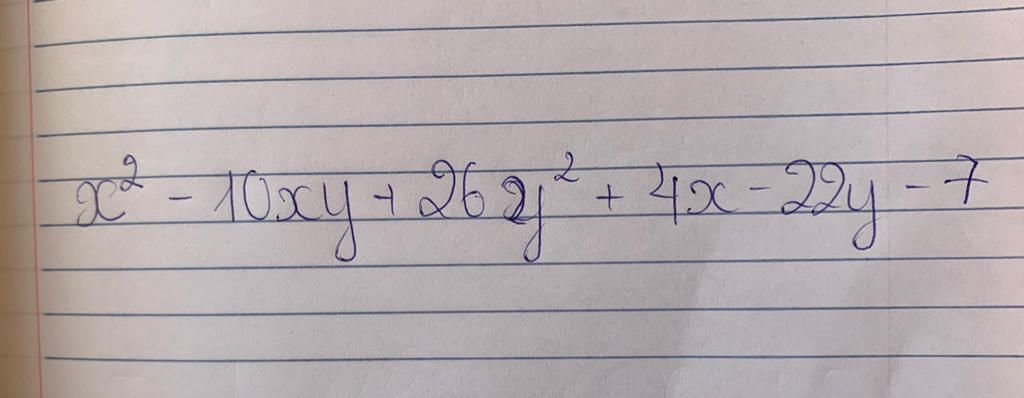 x² - 10xy + 26y² + 4x - 22y - 7